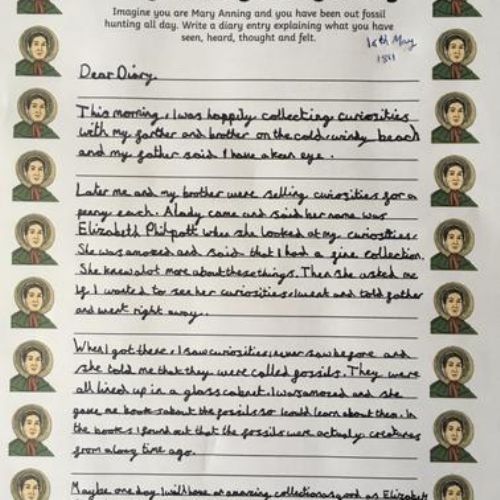 Imagine you are Mary Anning and you have been out fossil
hunting all day. Write a diary entry explaining what you have
seen, heard, thought and felt.
16th May
1811
Dear Diary,
This morning, I was happily collecting curiosities
with my farther and brother on the cold, windy beach
and my father said I have a keen eye.
Later me and my brother were selling curiosities for a
penny each. A lady came and said her name was
Elizabeth Philpott when she looked at my curiosities.
She was amazed and said that I had a fine collection.
She knew alot more about these things. Then she asked me
if I wanted to see her curiosities, I went and told father
and went right away.
When I got there, I saw curiosities, I never saw before and
she told me that they were called fossils. They were
all lined up in a glass cabnet. I was amazed and she
gave me books about the fossils so I could learn about them. In
the books I found out that the fossils were actually creatures
from a long time ago.
Maybe one day I will have an amazing collection as good as Elizabeth